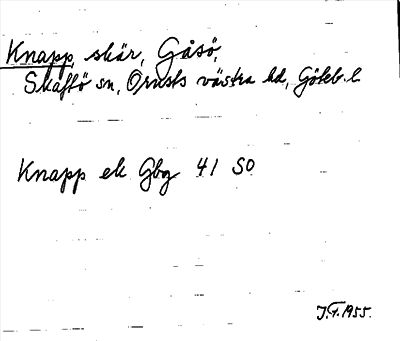 Knapp, skär, Gåsö,
Skaftö sn, Orusts västra hd, Göteb. l.
Knapp ek Gbg 41 SO
J.F. 1955.